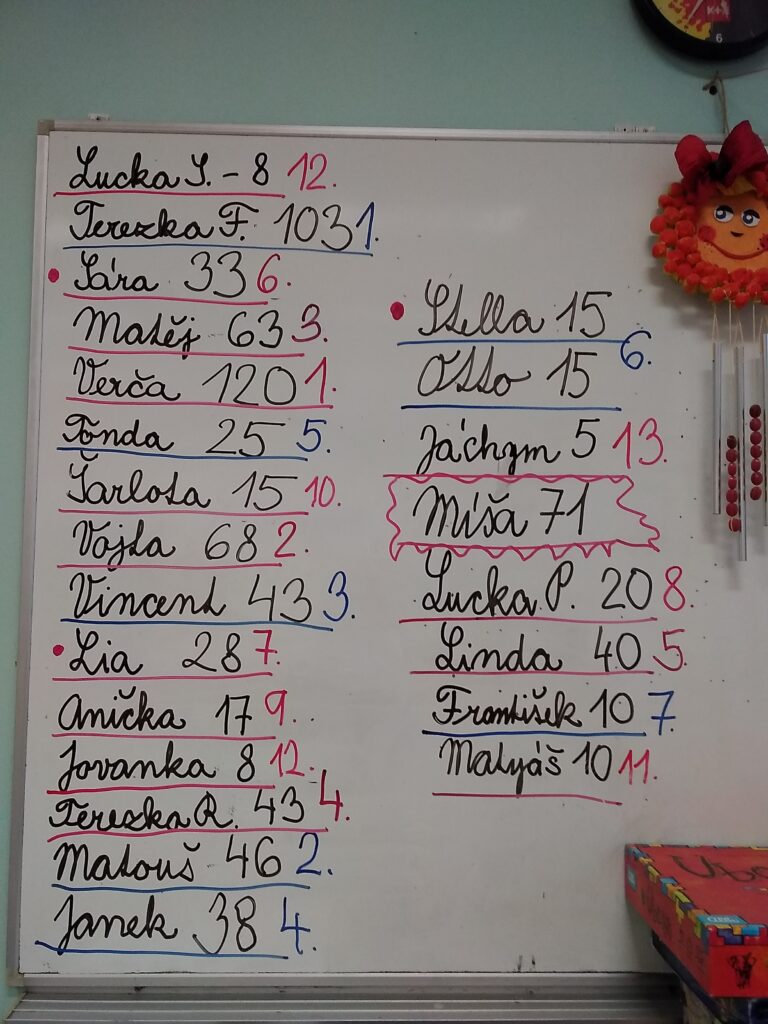 Lucka S. - 8 12.
Terezka F. 103 1.
Sára 33 6.
Matěj 63 3.
Verča 120 1.
Tonda 25 5.
Šarlota 15 10.
Vojta 68 2.
Vincent 43 3.
Lia 28 7.
Anička 17 9.
Jovanka 8 12.
Terezka R. 43 4.
Matouš 46 2.
Janek 38 4.
Stella 15
6.
Otto 15
Jáchym 5 13.
Míša 71
Lucka P. 20 8.
Linda 40 5.
František 10 7.
Matyáš 10 11.
K+
6